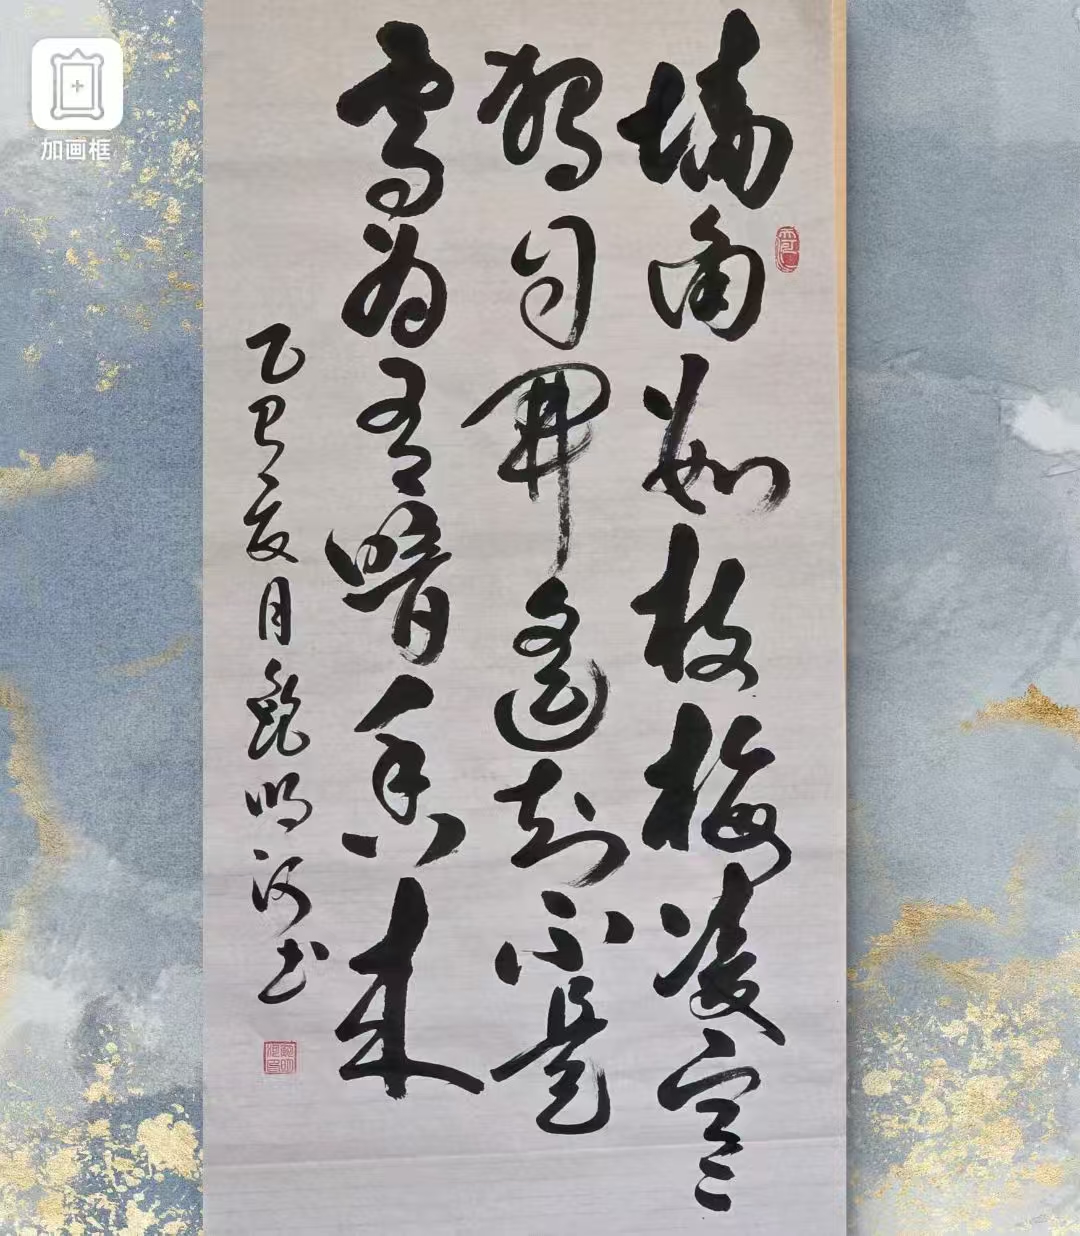 加画框
墙角数枝梅凌寒
独自開遥知不是
雪为有暗香来
乙巳夏月鲍明河书